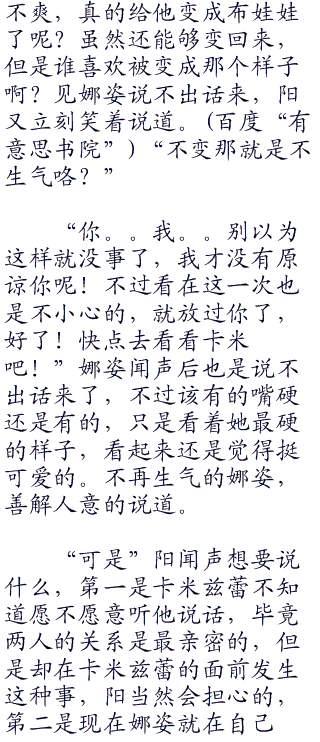 不爽，真的给他变成布娃娃
了呢？虽然还能够变回来，
但是谁喜欢被变成那个样子
啊？见娜姿说不出话来，阳
又立刻笑着说道。(百度“有
意思书院”)“不变那就是不
生气咯？”
“你。。我。。别以为
这样就没事了，我才没有原
谅你呢！不过看在这一次也
是不小心的，就放过你了，
好了！快点去看看卡米
吧！”娜姿闻声后也是说不
出话来了，不过该有的嘴硬
还是有的，只是看着她最硬
的样子，看起来还是觉得挺
可爱的。不再生气的娜姿，
善解人意的说道。
“可是”阳闻声想要说
什么，第一是卡米兹蕾不知
道愿不愿意听他说话，毕竟
两人的关系是最亲密的，但
是却在卡米兹蕾的面前发生
这种事，阳当然会担心的，
第二是现在娜姿就在自己